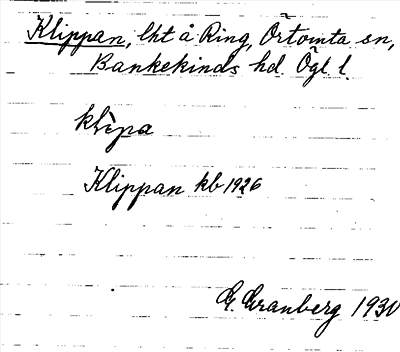 Klippan, lht å Ring, Örtomta sn,
Bankekinds hd. Ögl l.
klìpa
Klippan kb 1926
G. Granberg 1930